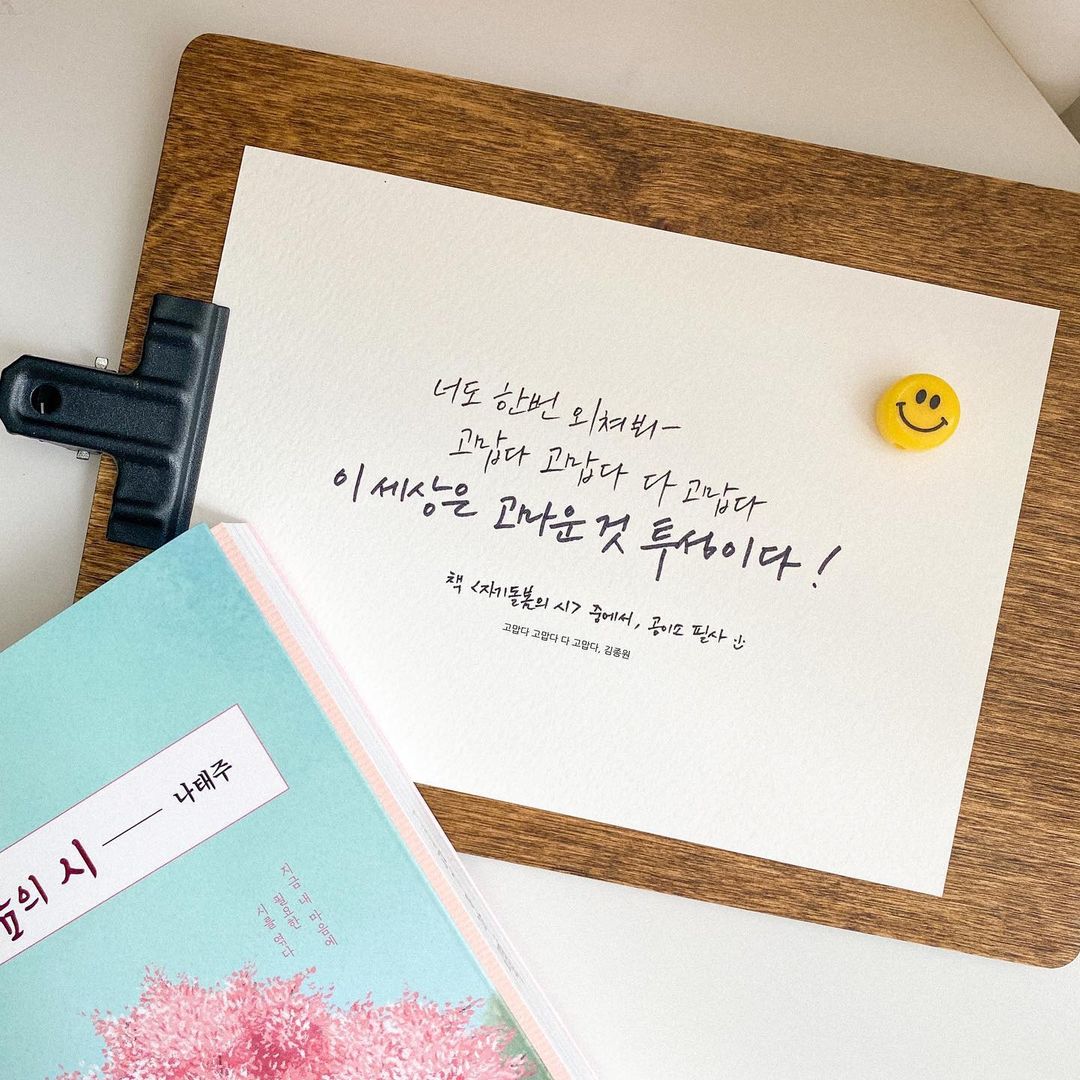 너도 한번 외쳐봐-
고맙다 고맙다 다 고맙다
이 세상은 고마운 것 투성이다!
책 <자기돌봄의 시> 중에서, 공이소 필사 :)
고맙다 고맙다 다 고맙다, 김종원
봄의 시 — 나태주
지금 내 마음에
필요한
시를 엮다